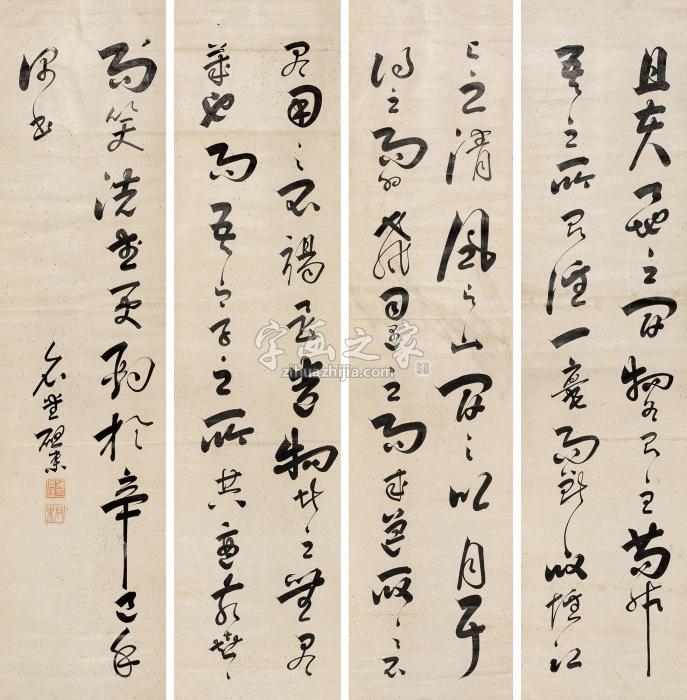 且夫天地之間物各有主苟非
吾之所有雖一毫而莫取惟江
上之清風与山間之明月耳
得之而為聲目遇之而成色取之不
用之不竭是造物者之無尽
藏也而吾与子之所共適客喜
而笑洗盞更酌於辛巳年
書
字画之家
zihuazhijia.com